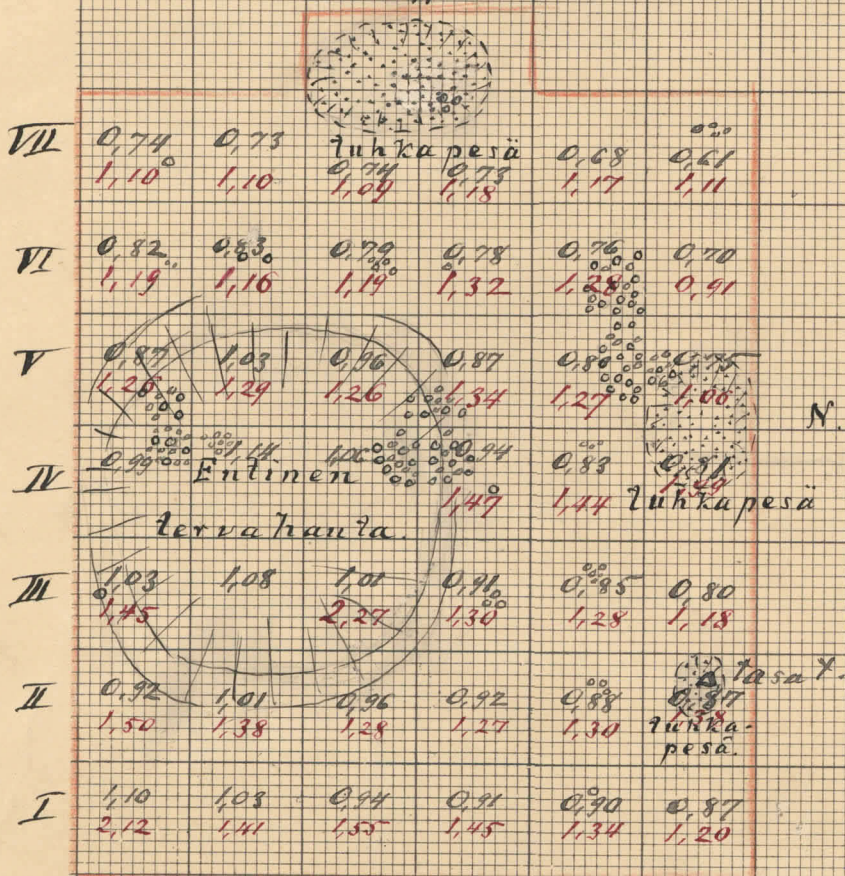 VII
0,74 0,73 0,68 0,61
tuhkapesä
0,74 0,73
1,10 1,10 1,09 1,18 1,17 1,11
VI
0,82 0,83 0,79 0,78 0,76 0,70
1,19 1,16 1,19 1,32 1,28 0,91
V
0,87 1,03 0,96 0,87
1,29 1,26 1,34 1,27 1,06
N.
IV
0,99 1,14 1,06 0,94 0,83
Entinen
1,47 1,44
tuhkapesä
tervahauta.
III
1,03 1,08 1,01 0,91 0,85 0,80
1,45 2,27 1,30 1,28 1,18
tasa
II
0,92 1,01 0,96 0,92 0,88 0,87
1,50 1,38 1,28 1,27 1,30
tuhka-
pesä.
I
1,10 1,03 0,94 0,91 0,90 0,87
2,12 1,41 1,55 1,45 1,34 1,20